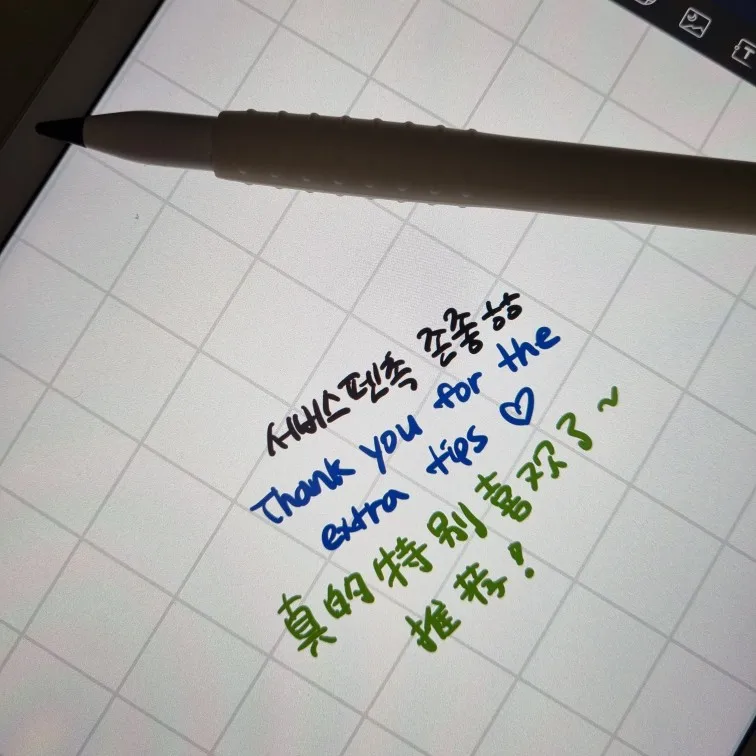 서비스펜촉 존좋항
Thank you for the
extra tips ♡
真的特别喜欢了~
推荐!